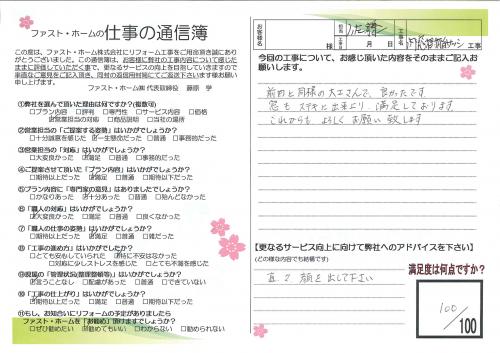 ファスト・ホームの仕事の通信簿
この度は、ファスト・ホーム株式会社にリフォーム工事をご用命頂き誠にあり
がとうございました。この通信簿は、お客様に弊社の工事内容について感じた
ままに評価していただく事で、更なるサービスの向上を目指していきますので
率直なご意見をご記入頂き、同封の返信用封筒にてご返送下さいます様お願い
申し上げます。
ファスト・ホーム㈱ 代表取締役 藤原 学
①弊社を選んで頂いた理由は何ですか?(複数可)
□プラン内容 □評判 □専門性 □サービス内容 □価格
□営業担当の対応 □商品説明 □当社の場所
②営業担当の「ご提案する姿勢」はいかがでしょうか?
□十分誠意を感じた □一生懸命だった □普通 □事務的だった
③営業担当の「対応」はいかがでしょうか?
□大変良かった □満足 □普通 □事務的だった
④ご提案させて頂いた「プラン内容」はいかがでしょうか?
□期待以上だった □満足 □普通 □期待以下だった
⑤プラン内容に「専門家の意見」はありましたでしょうか?
□かなりあった □十分あった □普通 □殆んどなかった
⑥「職人の対応」はいかがでしょうか?
□大変良かった □満足 □普通 □良くなかった
⑦「職人の仕事の姿勢」はいかがでしょうか?
□期待以上だった □満足 □普通 □そうでもない
⑧「工事の進め方」はいかがでしたか?
□とても安心していられた □特に不安はなかった
□対応に少しストレスを感じた □とても不満を感じた
⑨現場の「管理状況(整理整頓等)」はいかがでしょうか?
□言うことなし □配慮があった □普通 □できていない
⑩「工事の仕上がり」はいかがでしょうか?
□期待以上だった □満足 □普通 □期待以下だった
⑪もし、お知合いにリフォームの予定がありましたら
ファスト・ホームを「お勧め」頂けますでしょうか?
□ぜひ勧めたい □勧めてもいい □わからない □勧められない
お客様名
様
担当
月 日
工事
今回の工事について、お感じ頂いた内容をそのままご記入お
願いします。
前回と同様の大工さんで、良かったです
窓も ステキに出来上り 満足しております
これからも よろしく お願い致します
【更なるサービス向上に向けて弊社へのアドバイスを下さい】
(どの様な内容でも結構です)
顔を出して下さい
満足度は何点ですか?
100/
100